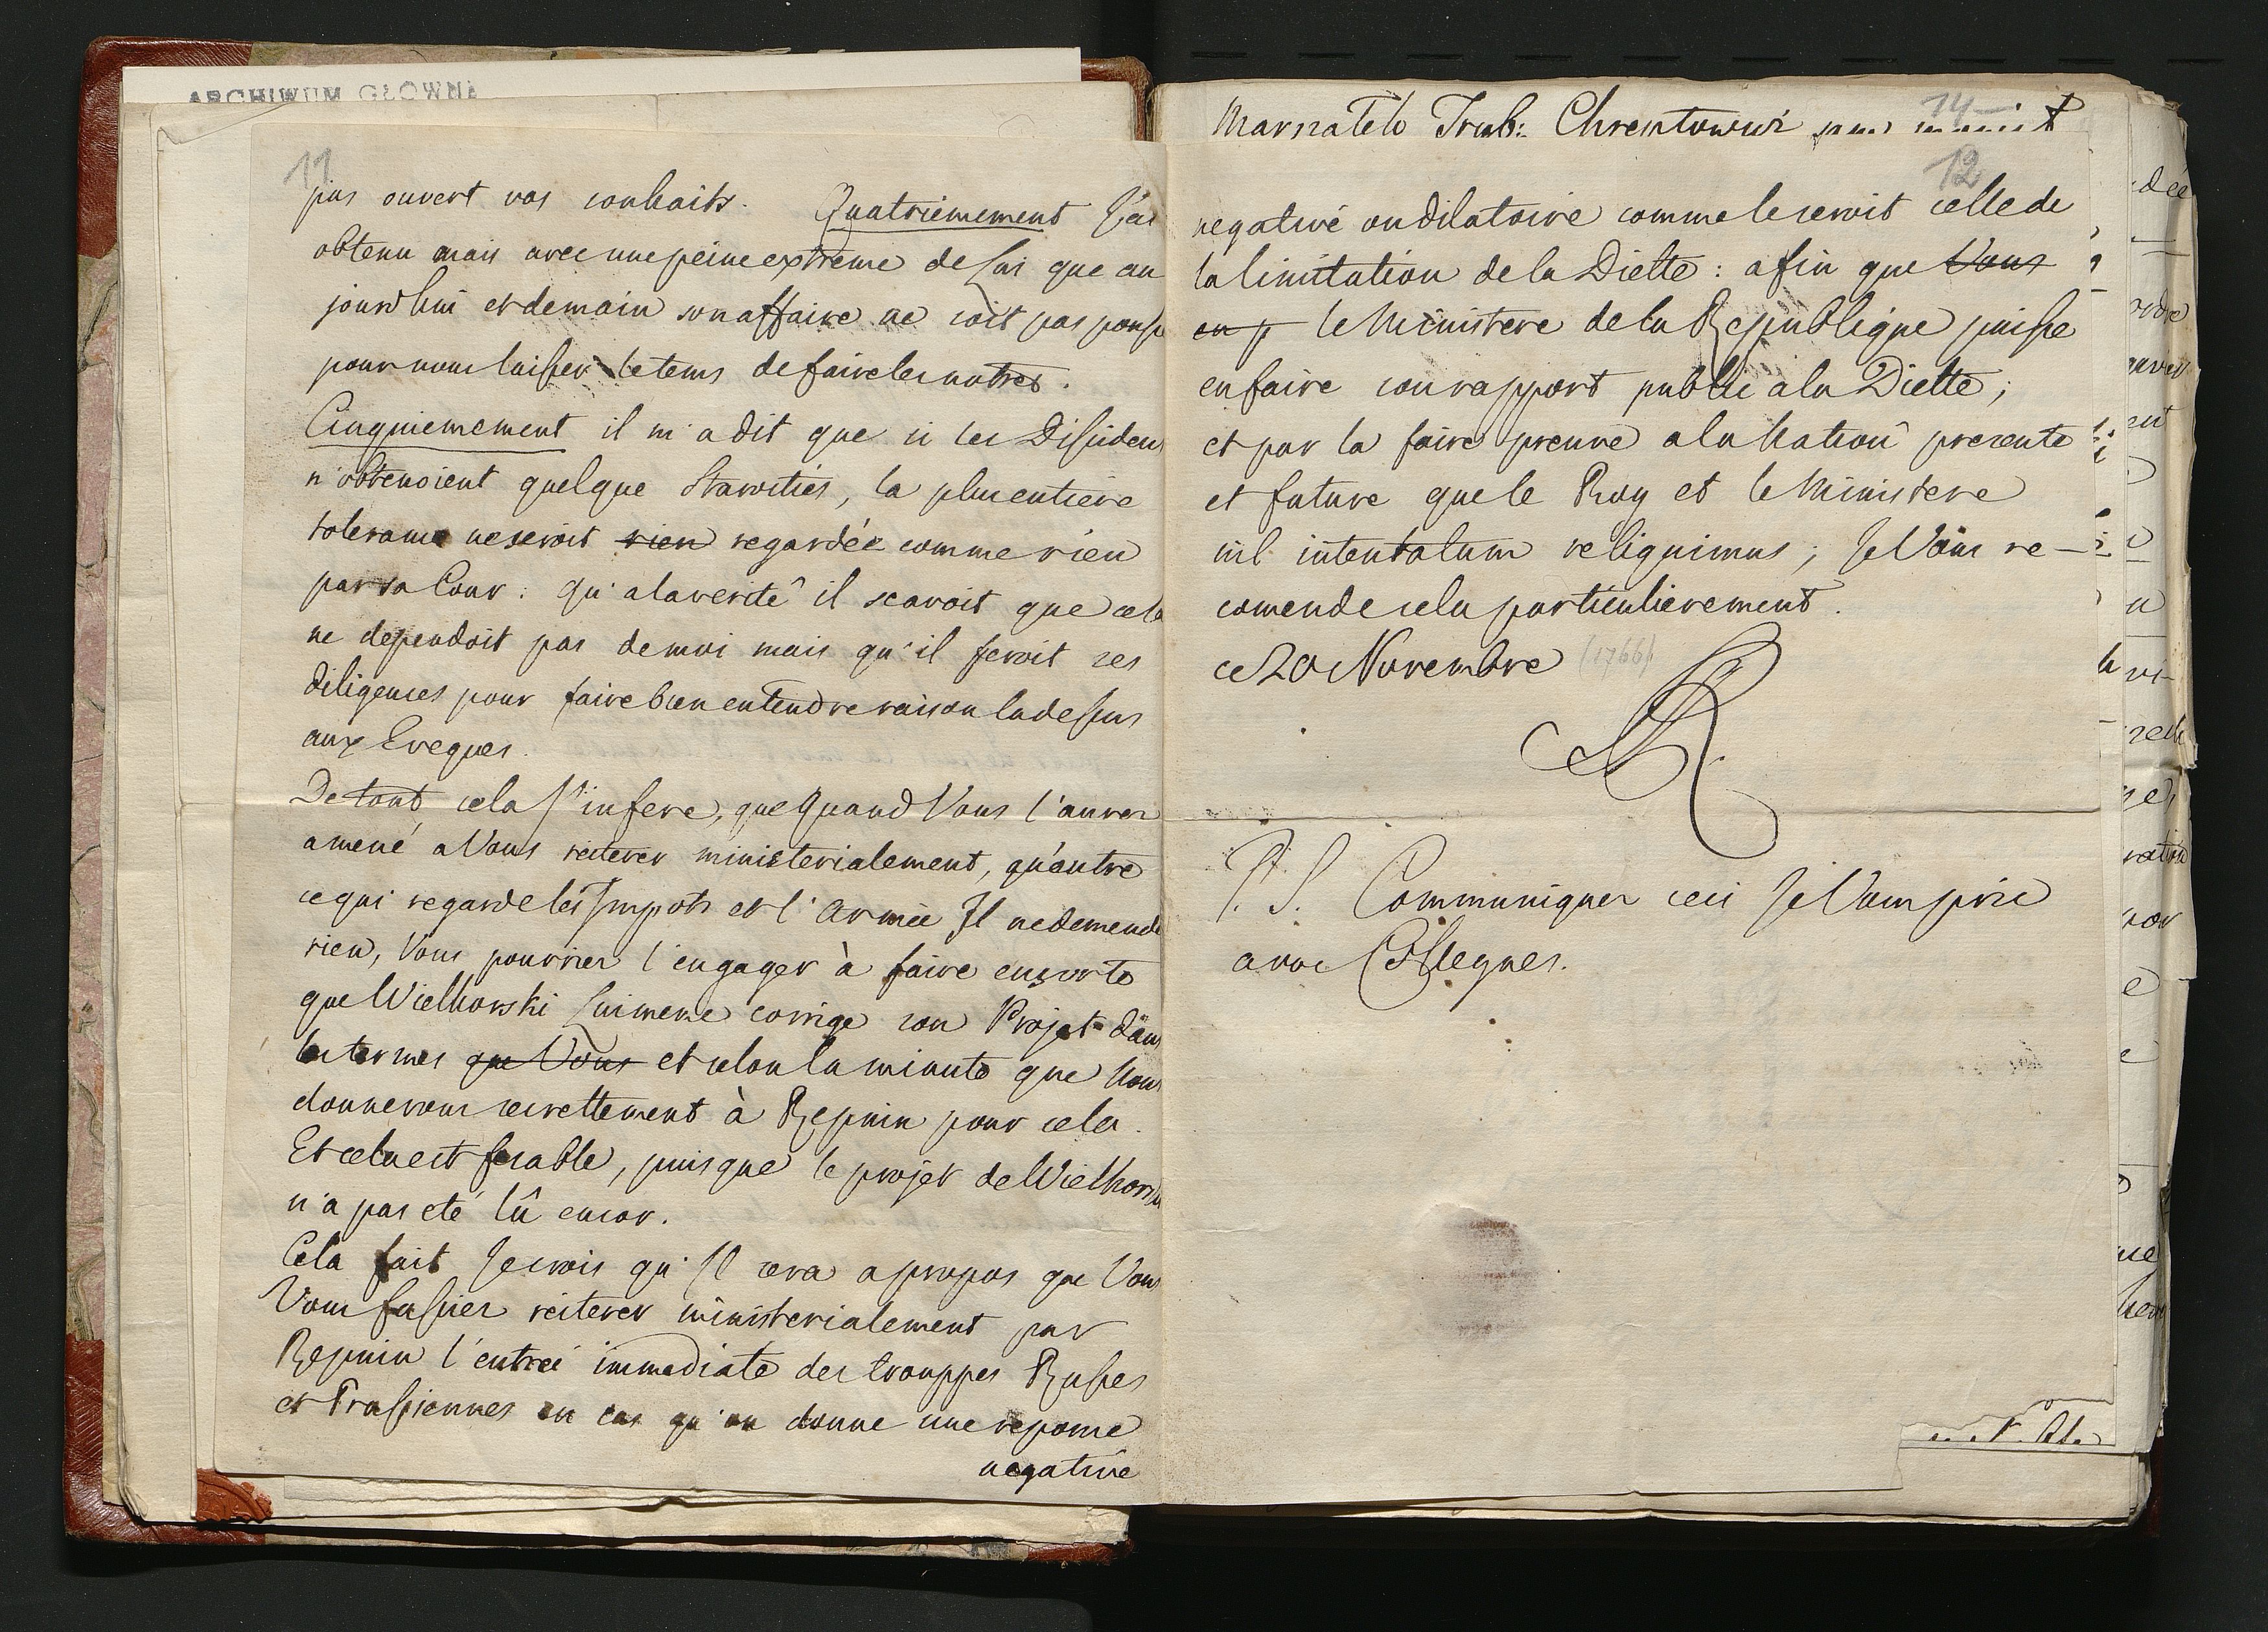 ARCHIWUM GŁOWN
11
pas ouvert vos souhaits. Quatriemement J'ai
obtenu mais avec une peine extreme de Lui que au
jourdhui et demain son affaire ne soit pas
pour nous laisser le tems de faire les notres.
Cinquiemement il m'a dit que si les Dissidens
n'obtenoient quelque Starosties, la plus entiere
tolerance ne seroit rien regardée comme rien
par sa Cour: qu'a la verité il scavoit que cela
ne dependoit pas de moi mais qu'il feroit ses
diligences pour faire bien entendre raison la dessus
aux Eveques.
De tout cela s'infere, que quand Vous l'aurez
amené a Vous reiterer ministerialement, qu'outre
ce qui regarde les Impots et l'Armée Il ne demende
rien, Vous pourriez l'engager à faire ensorte
que Wielhorski Lui meme corrige son Projet dans
les termes que Vous et selon la minute que Nous
donnerons secrettement à Repnin pour cela.
Et cela est fesable, puisque le projet de Wielhorski
n'a pas eté lû encor.
Cela fait Je crois qu'Il sera apropos que Vous
Vous fassiez reiterer ministerialement par
Repnin l'entreé immediate des trouppes Russes
et Prussiennes en cas qu'on donne une reponse
negative
14
Trub: Chreptowicz
12
negative ou dilatoire comme le seroit celle de
la limitation de la Diette: afin que Vous
en p le Ministere de la Republique puisse
en faire son rapport public a la Diette;
et par la faire preuve a la Nation presente
et future que le Roy et le Ministere
nil intentatum reliquimus; Je Vous re-
comende cela particulierement.
ce 20 Novembre (1766)
SAR
P.S. Communiquez ceci Je Vous prie
a vos Collegues.